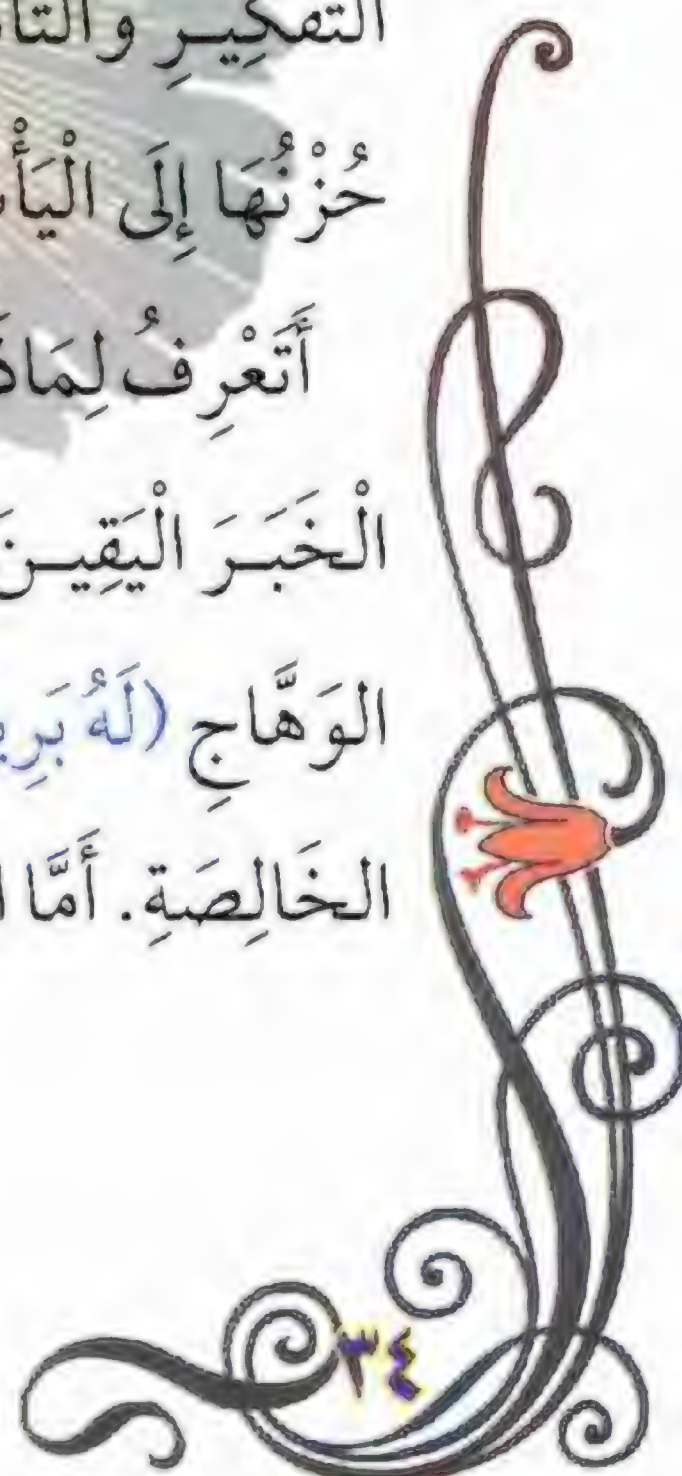 التفكِيرِ والتأ
حُزْنُهَا إِلَى الْيَأْ
أَتَعْرِفُ لِمَاذَ
الْخَبَرَ الْيَقِينَ
الوَهَّاجِ (لَهُ بَرِي
الخَالِصَةِ. أَمَّا ا
٣٤